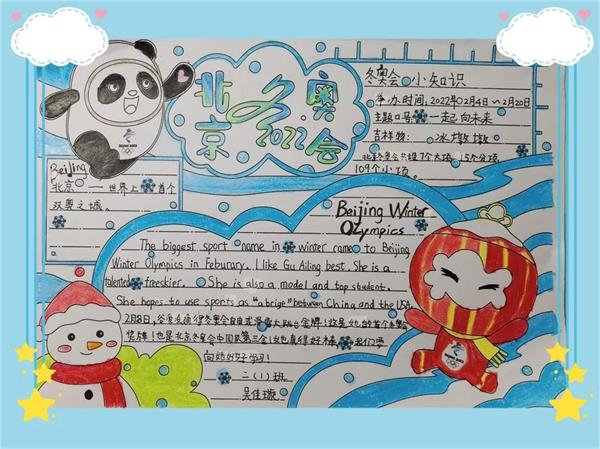 北京
冬奥会
2022
冬奥会 小知识
举办时间:2022年02月4日~2月20日
主题口号:一起向未来
吉祥物: 冰墩墩
北京冬奥会共设7个大项,15个分项
109个小项.
BeiJing
北京——世界上首个
双奥之城。
Beijing Winter
OLympics
The biggest sport name in winter came to Beijing
Winter Olympics in Feburary. I like Gu Ailing best. She is a
talented freeskier. She is also a model and top student.
She hopes to use sports as "a brige" between China and the USA.
2月8日,谷爱凌摘得冬奥会自由式滑雪大跳台金牌!这是她的首个冬奥会
奖牌!也是北京冬奥会中国队第三金!她真得好棒 我们要
向她好好学习!
二(1)班
吴佳璇